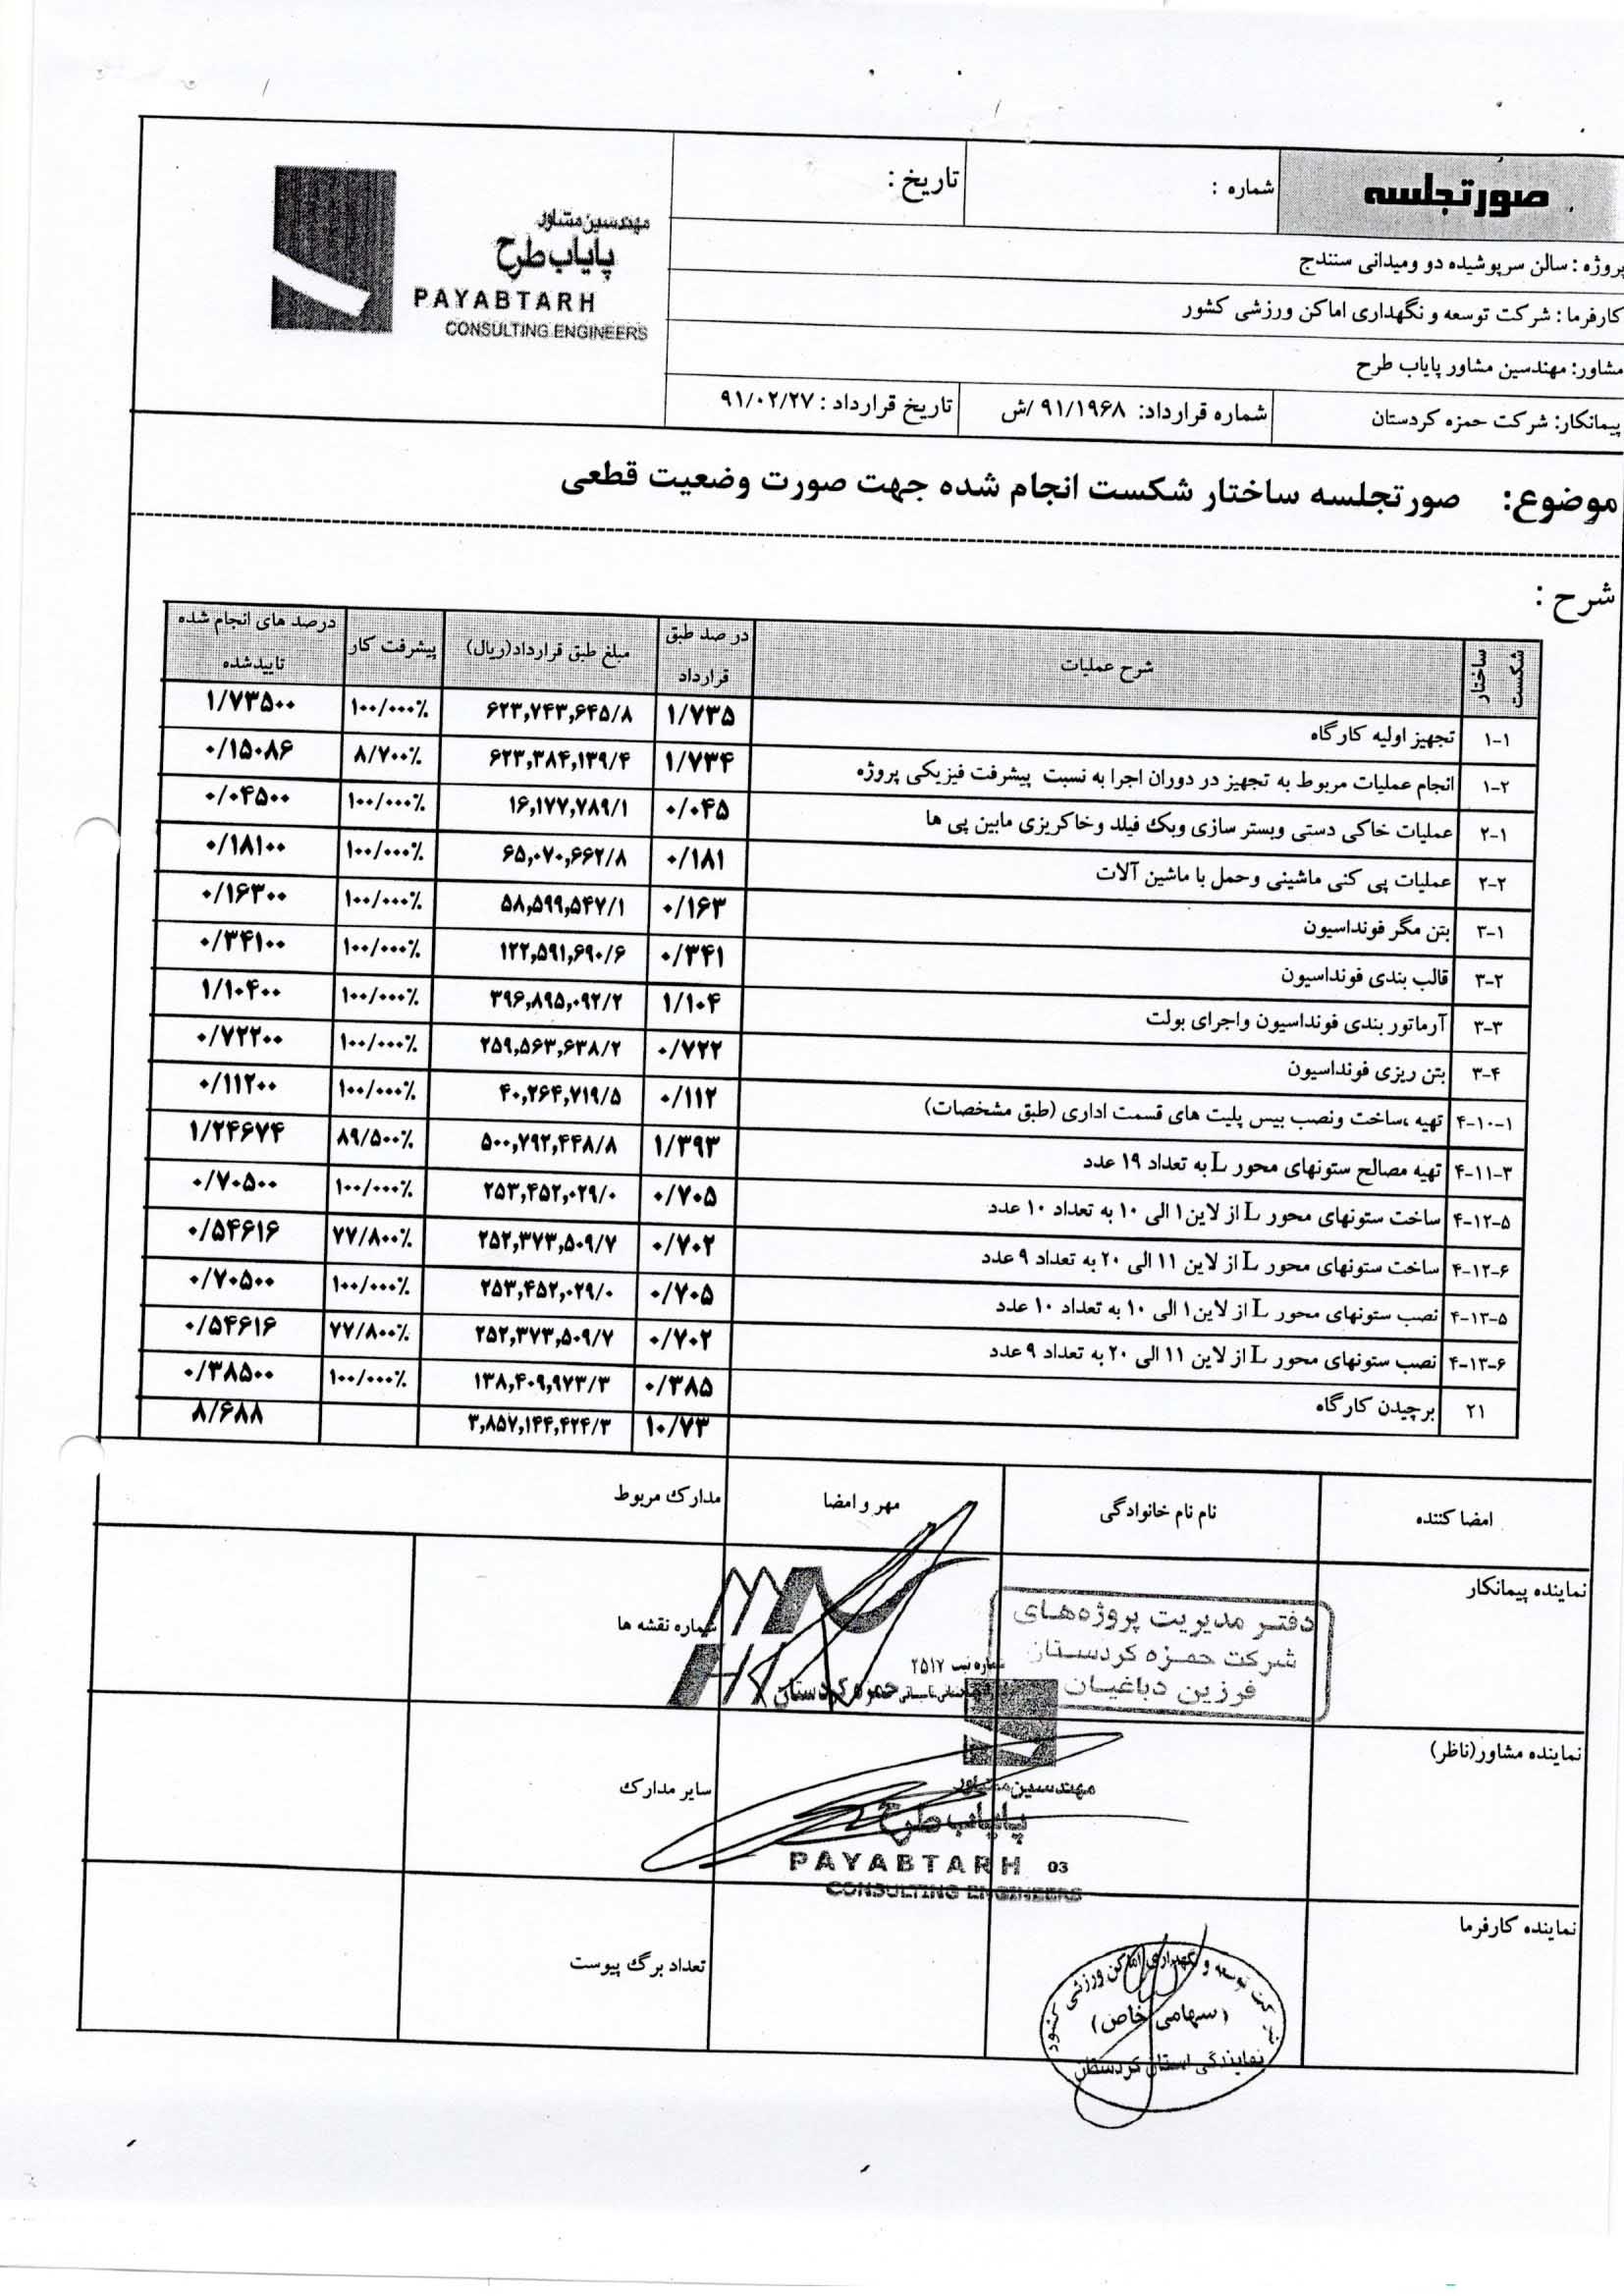 صورتجلسه
شماره :
تاریخ :
پروژه : سالن سرپوشیده دو ومیدانی سنندج
کارفرما : شرکت توسعه و نگهداری اماکن ورزشی کشور
مشاور: مهندسین مشاور پایاب طرح
پیمانکار: شرکت حمزه کردستان
شماره قرارداد: ۹۱/۱۹۶۸ /ش
تاریخ قرارداد : ۹۱/۰۲/۲۷
مهندسین مشاور
پایاب طرح
PAYABTARH
CONSULTING ENGINEERS
موضوع: صورتجلسه ساختار شکست انجام شده جهت صورت وضعیت قطعی
شرح :
ساختار شکست | شرح عملیات | در صد طبق قرارداد | مبلغ طبق قرارداد(ریال) | پیشرفت کار | درصد های انجام شده تاییدشده
۱-۱ | تجهیز اولیه کارگاه | ۱/۷۳۵ | ۶۲۳,۷۴۳,۶۴۵/۸ | ۱۰۰/۰۰۰٪ | ۱/۷۳۵۰۰
۱-۲ | انجام عملیات مربوط به تجهیز در دوران اجرا به نسبت پیشرفت فیزیکی پروژه | ۱/۷۳۴ | ۶۲۳,۳۸۴,۱۳۹/۴ | ۸/۷۰۰٪ | ۰/۱۵۰۸۶
۲-۱ | عملیات خاکی دستی وبستر سازی وبک فیلد وخاکریزی مابین پی ها | ۰/۰۴۵ | ۱۶,۱۷۷,۷۸۹/۱ | ۱۰۰/۰۰۰٪ | ۰/۰۴۵۰۰
۲-۲ | عملیات پی کنی ماشینی وحمل با ماشین آلات | ۰/۱۸۱ | ۶۵,۰۷۰,۶۶۲/۸ | ۱۰۰/۰۰۰٪ | ۰/۱۸۱۰۰
۳-۱ | بتن مگر فونداسیون | ۰/۱۶۳ | ۵۸,۵۹۹,۵۴۷/۱ | ۱۰۰/۰۰۰٪ | ۰/۱۶۳۰۰
۳-۲ | قالب بندی فونداسیون | ۰/۳۴۱ | ۱۲۲,۵۹۱,۶۹۰/۶ | ۱۰۰/۰۰۰٪ | ۰/۳۴۱۰۰
۳-۳ | آرماتور بندی فونداسیون واجرای بولت | ۱/۱۰۴ | ۳۹۶,۸۹۵,۰۹۲/۲ | ۱۰۰/۰۰۰٪ | ۱/۱۰۴۰۰
۳-۴ | بتن ریزی فونداسیون | ۰/۷۲۲ | ۲۵۹,۵۶۳,۶۳۸/۲ | ۱۰۰/۰۰۰٪ | ۰/۷۲۲۰۰
۴-۱۰-۱ | تهیه ،ساخت ونصب بیس پلیت های قسمت اداری (طبق مشخصات) | ۰/۱۱۲ | ۴۰,۲۶۴,۷۱۹/۵ | ۱۰۰/۰۰۰٪ | ۰/۱۱۲۰۰
۴-۱۱-۳ | تهیه مصالح ستونهای محور L به تعداد ۱۹ عدد | ۱/۳۹۳ | ۵۰۰,۷۹۲,۴۴۸/۸ | ۸۹/۵۰۰٪ | ۱/۲۴۶۷۴
۴-۱۲-۵ | ساخت ستونهای محور L از لاین۱ الی ۱۰ به تعداد ۱۰ عدد | ۰/۷۰۵ | ۲۵۳,۴۵۲,۰۲۹/۰ | ۱۰۰/۰۰۰٪ | ۰/۷۰۵۰۰
۴-۱۲-۶ | ساخت ستونهای محور L از لاین ۱۱ الی ۲۰ به تعداد ۹ عدد | ۰/۷۰۲ | ۲۵۲,۳۷۳,۵۰۹/۷ | ۷۷/۸۰۰٪ | ۰/۵۴۶۱۶
۴-۱۳-۵ | نصب ستونهای محور L از لاین۱ الی ۱۰ به تعداد ۱۰ عدد | ۰/۷۰۵ | ۲۵۳,۴۵۲,۰۲۹/۰ | ۱۰۰/۰۰۰٪ | ۰/۷۰۵۰۰
۴-۱۳-۶ | نصب ستونهای محور L از لاین ۱۱ الی ۲۰ به تعداد ۹ عدد | ۰/۷۰۲ | ۲۵۲,۳۷۳,۵۰۹/۷ | ۷۷/۸۰۰٪ | ۰/۵۴۶۱۶
۲۱ | برچیدن کارگاه | ۰/۳۸۵ | ۱۳۸,۴۰۹,۹۷۳/۳ | ۱۰۰/۰۰۰٪ | ۰/۳۸۵۰۰
۱۰/۷۳ | ۳,۸۵۷,۱۴۴,۴۲۴/۳ | ۸/۶۸۸
امضا کننده | نام نام خانوادگی | مهر و امضا | مدارک مربوط
نماینده پیمانکار
دفتر مدیریت پروژه‌های
شرکت حمزه کردستان
فرزین دباغیان
شماره ثبت ۲۵۱۷
حمزه کردستان
شماره نقشه ها
نماینده مشاور(ناظر)
مهندسین مشاور
پایاب طرح
PAYABTARH 03
CONSULTING ENGINEERS
سایر مدارک
نماینده کارفرما
شرکت توسعه و نگهداری اماکن ورزشی کشور
(سهامی خاص)
نمایندگی استان کردستان
تعداد برگ پیوست